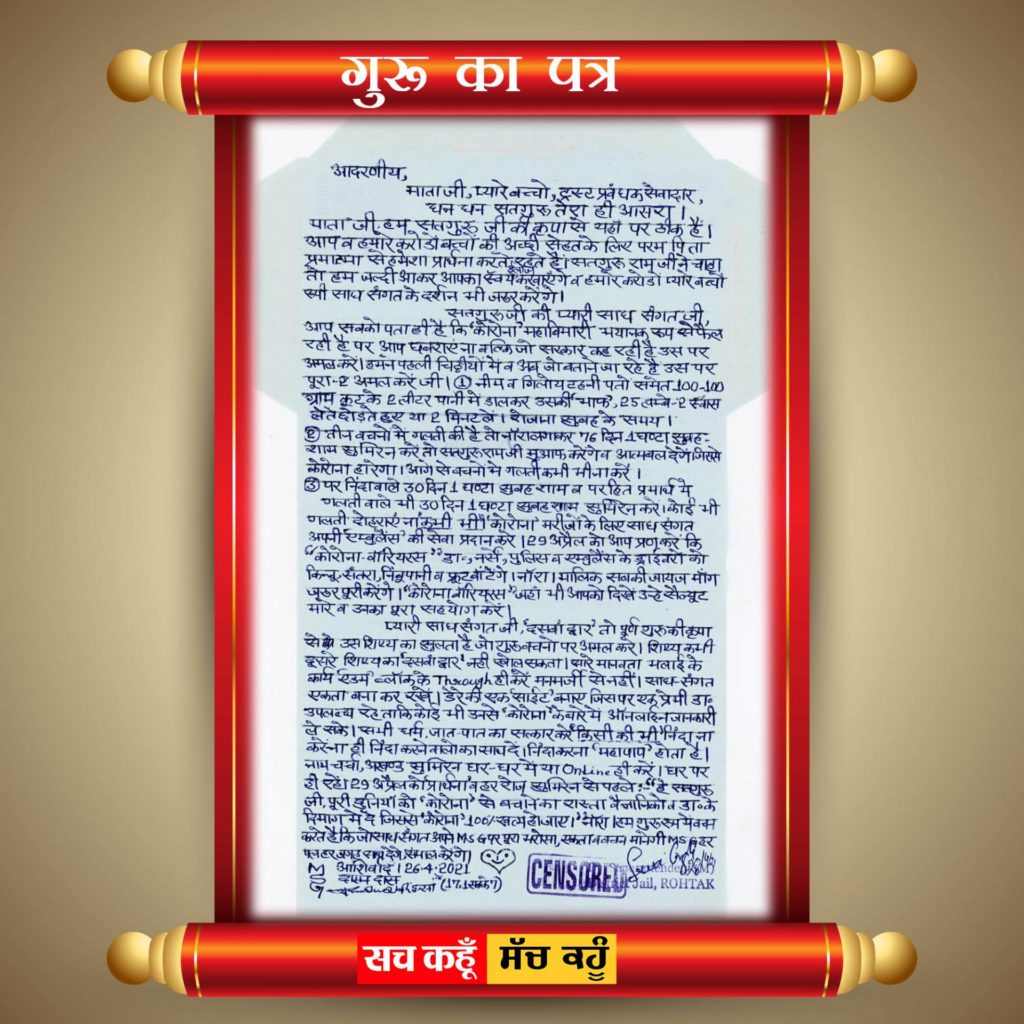 गुरू का पत्र
आदरणीय,
माता जी, प्यारे बच्चो, ट्रस्ट प्रबंधक सेवादार,
धन धन सतगुरू तेरा ही आसरा।
माता जी, हम सतगुरू जी की कृपा से यहाँ पर ठीक हैं।
आप व हमारे करोडों बच्चों की अच्छी सेहत के लिए परम पिता
प्रमात्मा से हमेशा प्रार्थना करते रहते हैं। सतगुरू राम जी ने चाहा
तो हम जल्दी आकर आपका करवाएंगे व हमारे करोडों प्यारे बच्चों
रूपी साध संगत के दर्शन भी जरूर करेंगे।
सतगुरू जी की प्यारी साध संगत जी,
आप सबको पता ही है कि 'कोरोना' महाबिमारी भयानक रूप से फैल
रही है पर आप घबराएं ना बल्कि जो सरकार कह रही है उस पर
अमल करें। हमने पहली चिट्ठीयों में व अब जो बताने जा रहे है उस पर
पूरा-2 अमल करें जी। ① नीम व गिलोय टहनी पतों समेत 100-100
ग्राम कूट के 2 लीटर पानी में डालकर उसकी 'भाफ', 25 लम्बे-2 स्वास
लेते छोड़ते हुए या 2 मिनट लें। रोजाना सुबह के समय।
② तीन वचनों में गलती की है तो नॉरा लगाकर 76 दिन 1 घण्टा सुबह-
शाम सुमिरन करें तो सतगुरू राम जी मुआफ करेंगे व आत्मबल देंगे जिससे
कोरोना हारेगा। आगे से वचनों में गलती कभी भी ना करें।
③ पर निंदा वाले 30 दिन 1 घण्टा सुबह शाम व परहित प्रमार्थ में
गलती वाले भी 30 दिन 1 घण्टा सुबह शाम सुमिरन करें। कोई भी
गलती दोहराएं ना कभी भी। 'कोरोना' मरीजों के लिए साध संगत
अपनी 'एम्बुलैंस' की सेवा प्रदान करे। 29 अप्रैल को आप प्रण करें कि
"कोरोना-वॉरियरस" डा॰, नर्स, पुलिस व एम्बुलैंस के ड्राईवरों को
किन्नू-संतरा, निंबू पानी व फ्रूट बाँटेंगे। नॉरा। मालिक सबकी जायज माँग
जरूर पूरी करेंगे। "कोरोना वॉरियरस" जहाँ भी आपको दिखें उन्हें सैल्यूट
मारें व उनका पूरा सहयोग करें।
प्यारी साध संगत जी, 'दसवां द्वार' तो पूर्ण गुरू की कृपा
से उस शिष्य का खुलता है जो गुरू वचनों पर अमल करे। शिष्य कभी
दूसरे शिष्य का 'दसवां द्वार' नहीं खोल सकता। सारे मानवता भलाई के
कार्य एडम ब्लॉक के Through ही करें मनमर्जी से नहीं। साध-संगत
एकता बना कर रखें। डेरे की एक 'साईट' बनाएं जिस पर एक प्रेमी डा॰
उपलब्ध रहे ताकि कोई भी उनसे 'कोरोना' के बारे में ऑनलाईन जानकारी
ले सके। सभी धर्म, जात-पात का सत्कार करें किसी की भी निंदा ना
करें ना ही निंदा करने वालों का साथ दें। निंदा करना 'महापाप' होता है।
नाम चर्चा, अखण्ड सुमिरन घर-घर में या Online ही करें। घर पर
ही रहें। 29 अप्रैल को प्रार्थना व हर रोज सुमिरन से पहले:- "हे सतगुरू
जी, पूरी दुनियाँ को 'कोरोना' से बचाने का रास्ता वैज्ञानिकों व डा॰ के
दिमाग में दें जिससे 'कोरोना' 100% खत्म हो जाए।" नॉरा। हम गुरू रूप में वचन
करते हैं कि जो साध संगत अपने MSG पर पूरा भरोसा, एकता व वचन मानेगी MSG हर
पल हर जगह साथ देंगे, संभाल करेंगे।
M आशिर्वाद। 26-4-2021
S दासन दास
G
CENSORED
Jail, ROHTAK
सच कहूँ ਸੱਚ ਕਹੂੰ